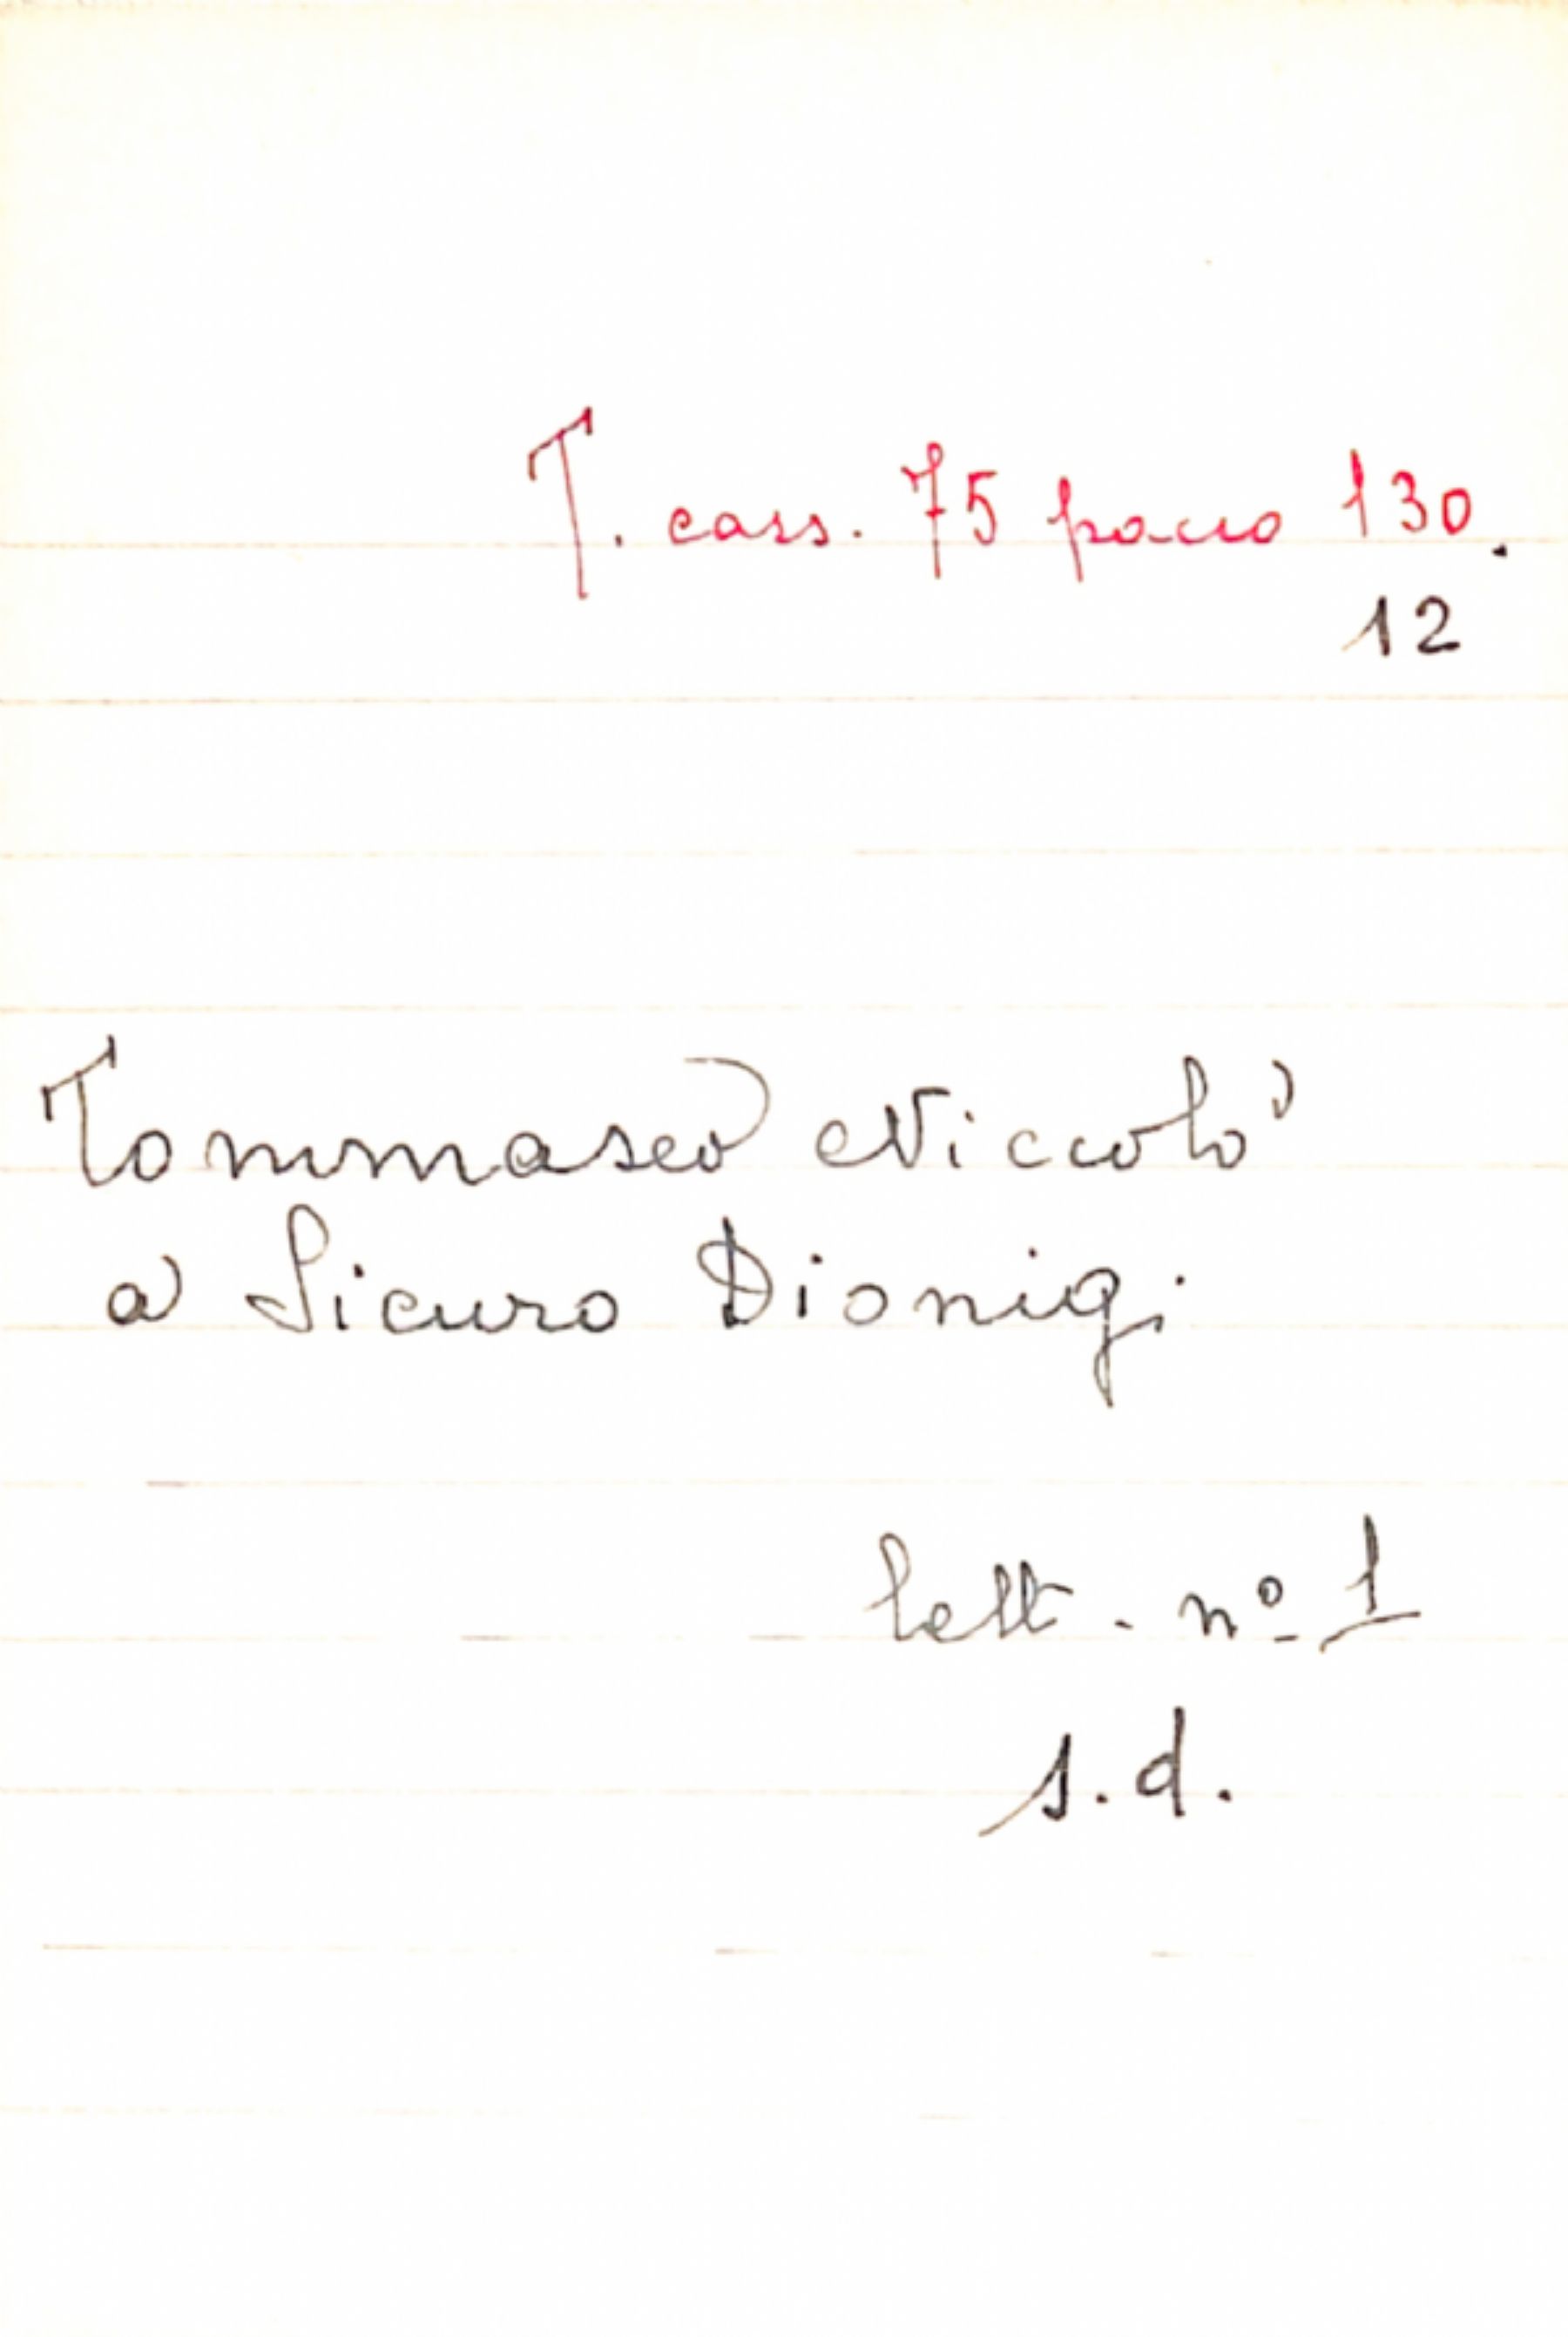 T. cass. 75 pacco 130.
12
Tommaseo Niccolò
a Sicuro Dionigi
lett. nº 1
s.d.